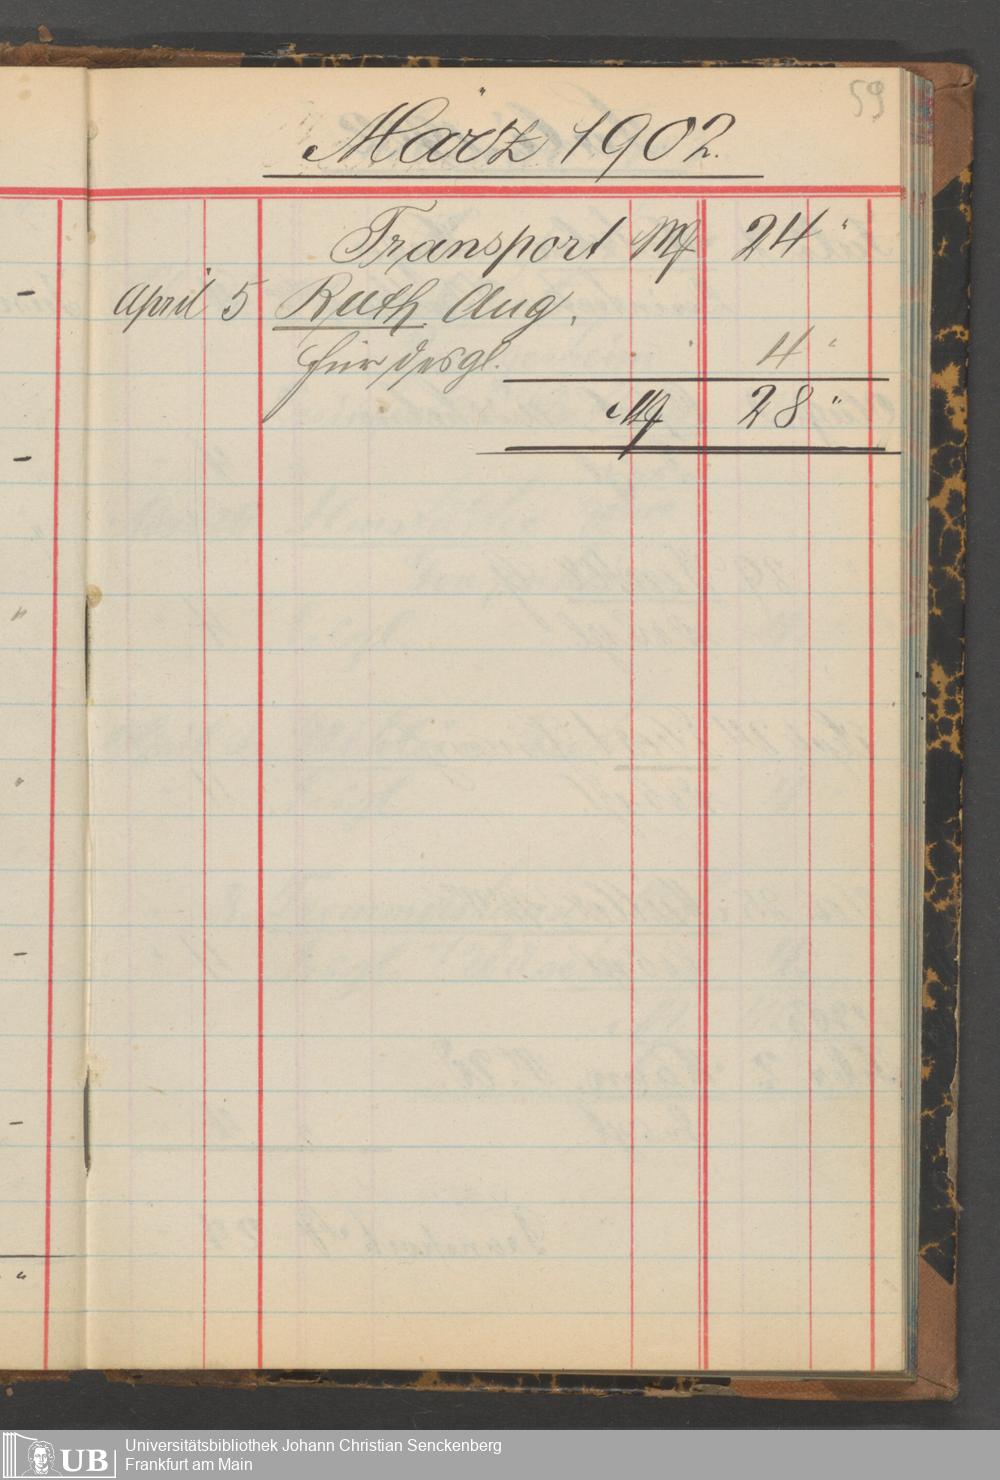 59
März 1902.
Transport M 24 "
April 5 Ruth Aug.
für desgl. 4 "
M 28 "
UB
Universitätsbibliothek Johann Christian Senckenberg
Frankfurt am Main